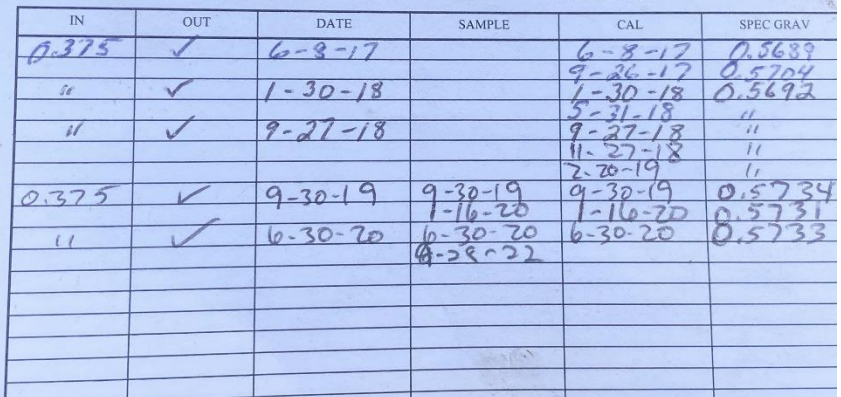 IN OUT DATE SAMPLE CAL SPEC GRAV
0.375 ✓ 6-8-17 6-8-17 0.5689
9-26-17 0.5704
" ✓ 1-30-18 1-30-18 0.5692
5-31-18 "
" ✓ 9-27-18 9-27-18 "
11-27-18 "
2-20-19 "
0.375 ✓ 9-30-19 9-30-19 9-30-19 0.5734
1-16-20 1-16-20 0.5731
" ✓ 6-30-20 6-30-20 6-30-20 0.5733